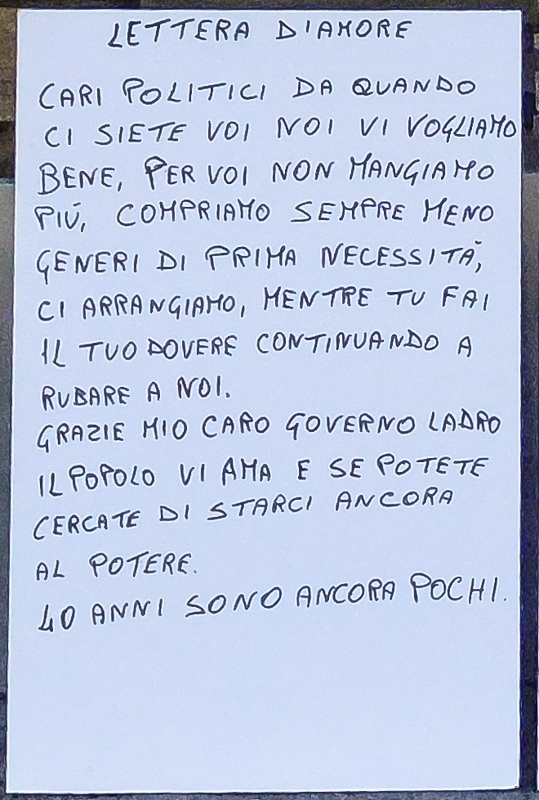 LETTERA D'AMORE
CARI POLITICI DA QUANDO
CI SIETE VOI NOI VI VOGLIAMO
BENE, PER VOI NON MANGIAMO
PIÚ, COMPRIAMO SEMPRE MENO
GENERI DI PRIMA NECESSITÀ,
CI ARRANGIAMO, MENTRE TU FAI
IL TUO DOVERE CONTINUANDO A
RUBARE A NOI.
GRAZIE MIO CARO GOVERNO LADRO
IL POPOLO VI AMA E SE POTETE
CERCATE DI STARCI ANCORA
AL POTERE.
40 ANNI SONO ANCORA POCHI.